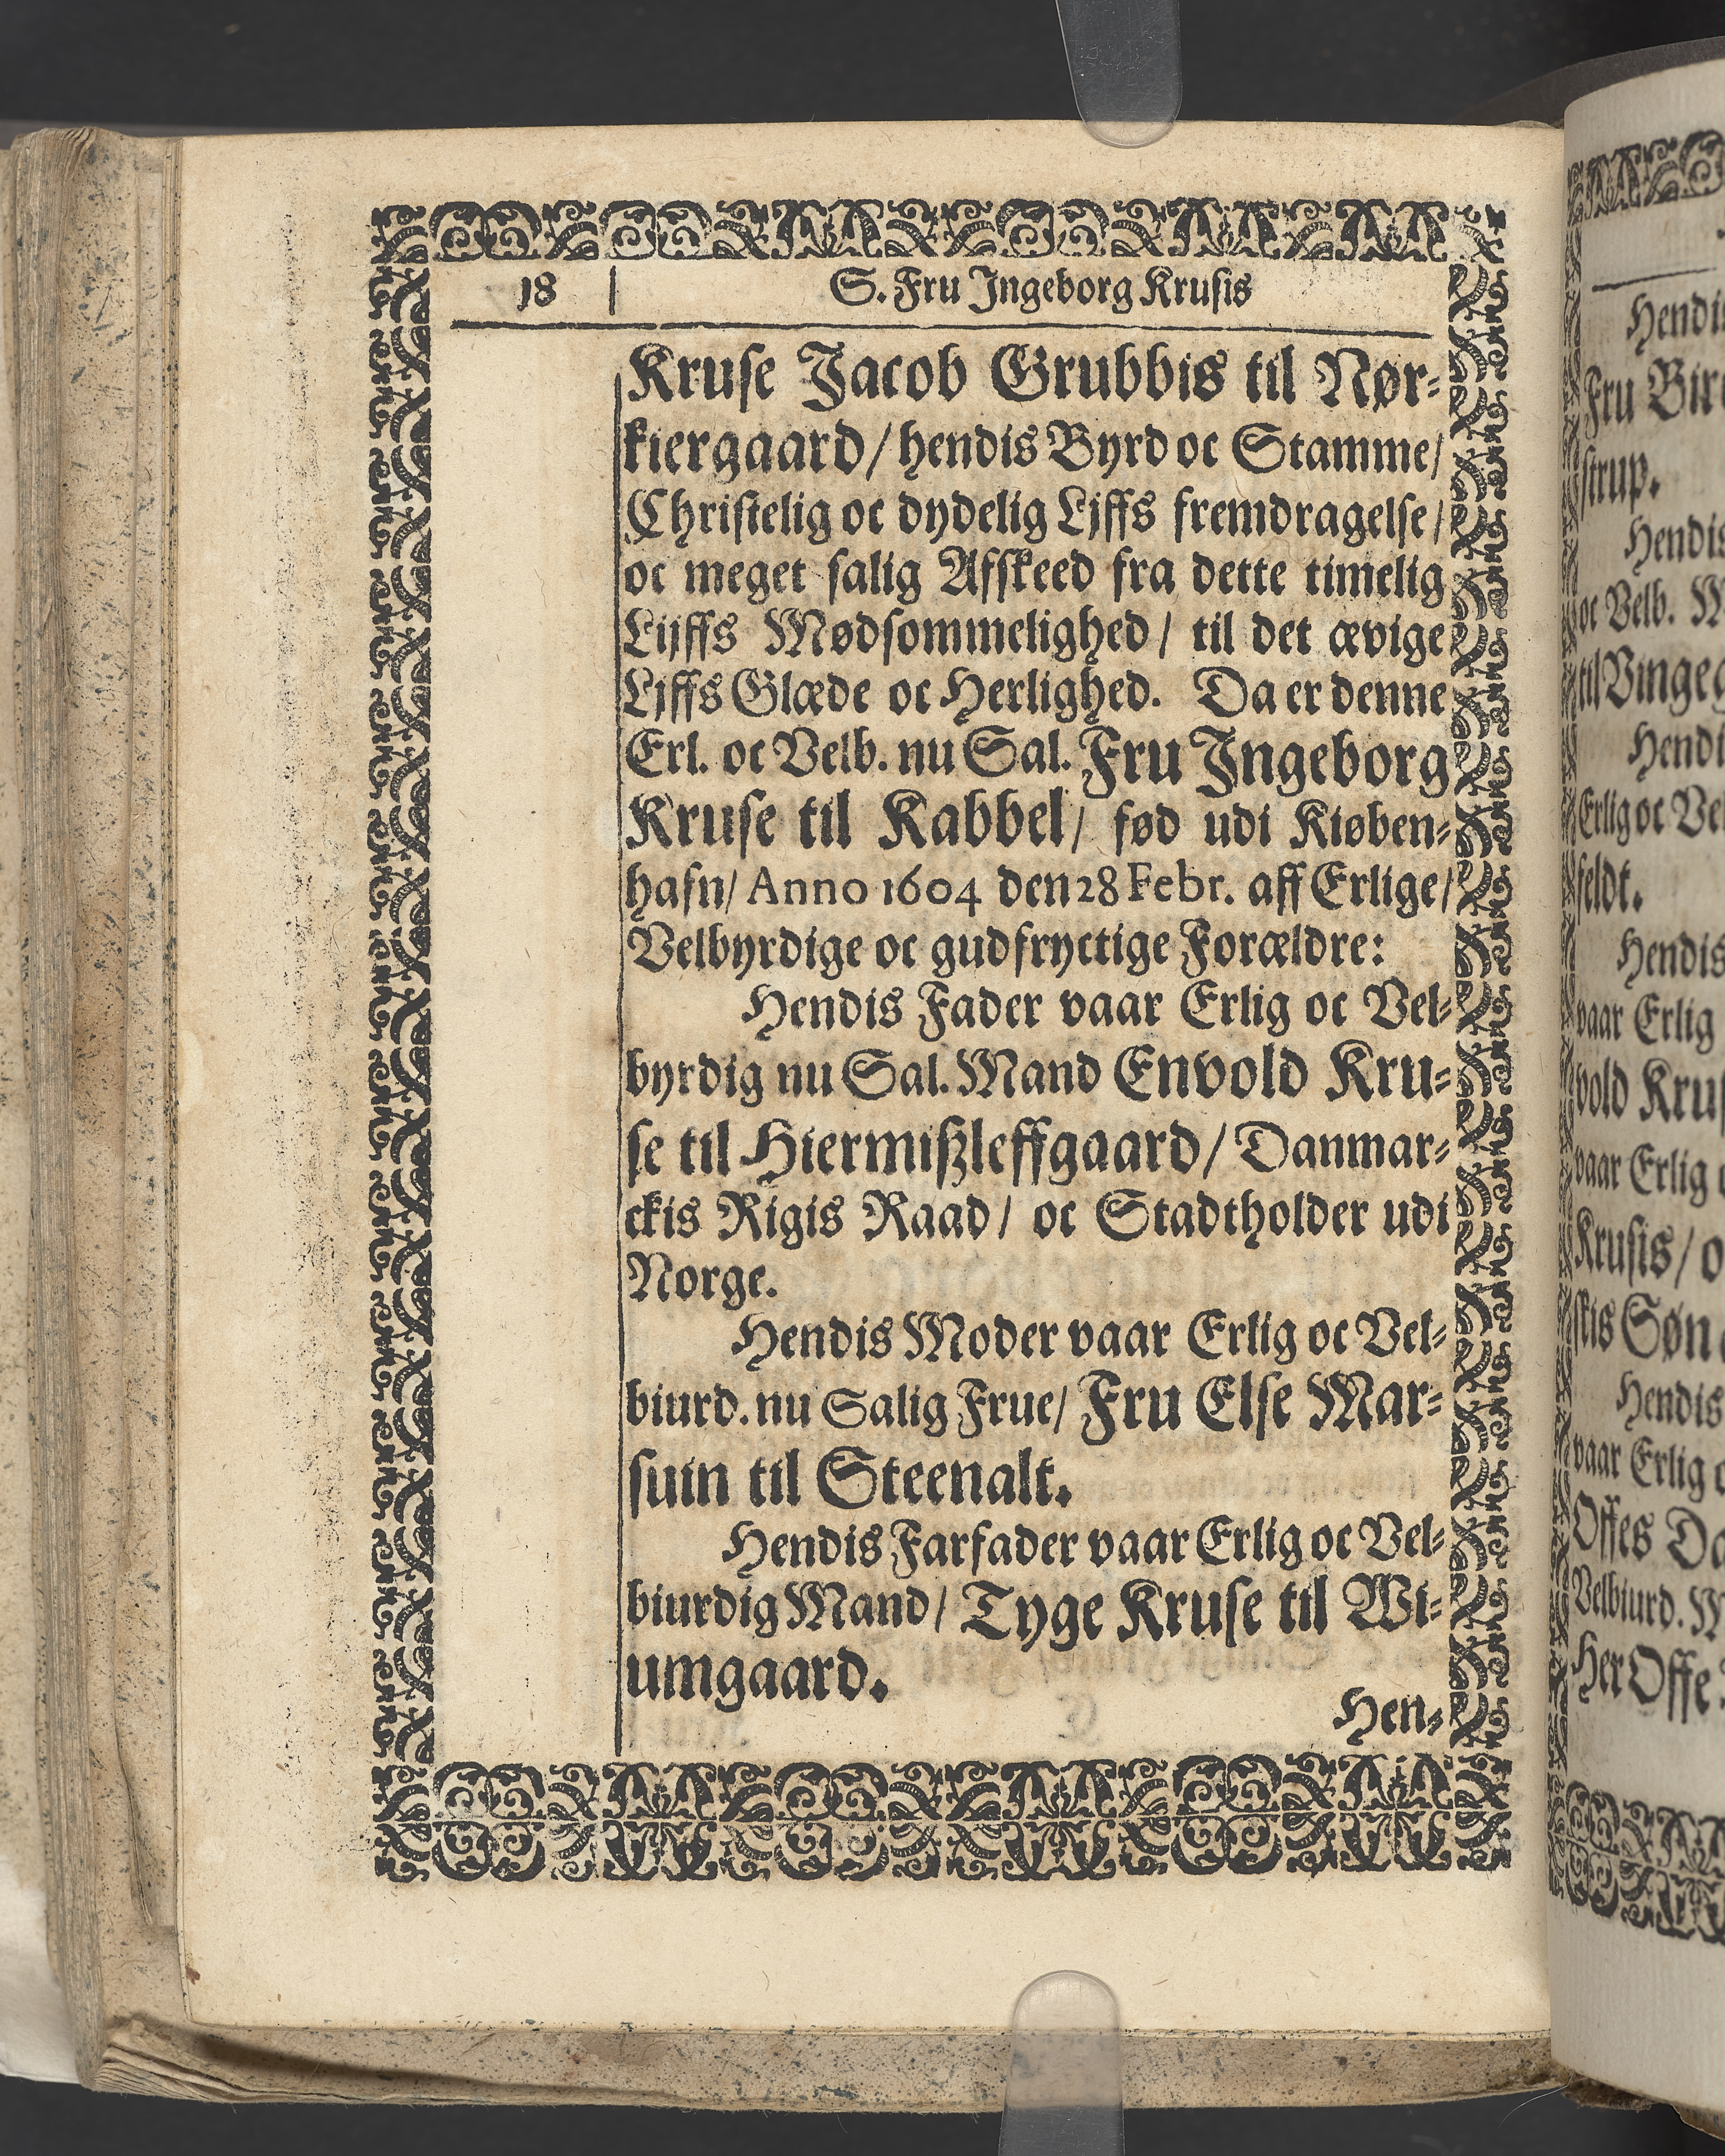 18 S. Fru Ingeborg Krusis
Kruse Jacob Grubbis til Nør-
kiergaard/ hendis Byrd oc Stamme/
Christelig oc dydelig Lijffs fremdragelse/
oc meget salig Afskeed fra dette timelig
Lijffs Mødsommelighed/ til det ævige
Lijffs Glæde oc Herlighed. Da er denne
Erl. oc Velb. nu Sal. Fru Ingeborg
Kruse til Kabbel/ fød udi Kiøben-
hafn/ Anno 1604 den 28 Febr. aff Erlige/
Velbyrdige oc gudfryctige Forældre:
Hendis Fader vaar Erlig oc Vel-
byrdig nu Sal. Mand Envold Kru-
se til Hiermißleffgaard/ Danmar-
ckis Rigis Raad/ oc Stadtholder udi
Norge.
Hendis Moder vaar Erlig oc Vel-
biurd. nu Salig Frue/ Fru Else Mar-
suin til Steenalt.
Hendis Farfader vaar Erlig oc Vel-
biurdig Mand/ Tyge Kruse til Wi-
umgaard.
Hen-
Hendi
Fru Bir
strup.
Hendis
oc Velb. M
til Vingeg
Hendi
Erlig oc Ve
feldt.
Hendis
vaar Erlig
vold Krus
vaar Erlig
Krusis/ o
skis Søn
Hendis
vaar Erlig
Offes Da
Velbiurd. M
Her Offe